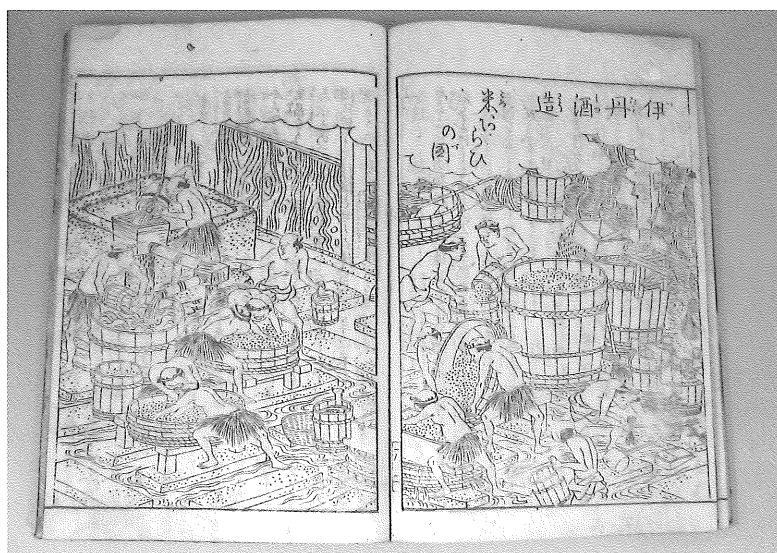 伊丹酒造
米あらひ
の圖